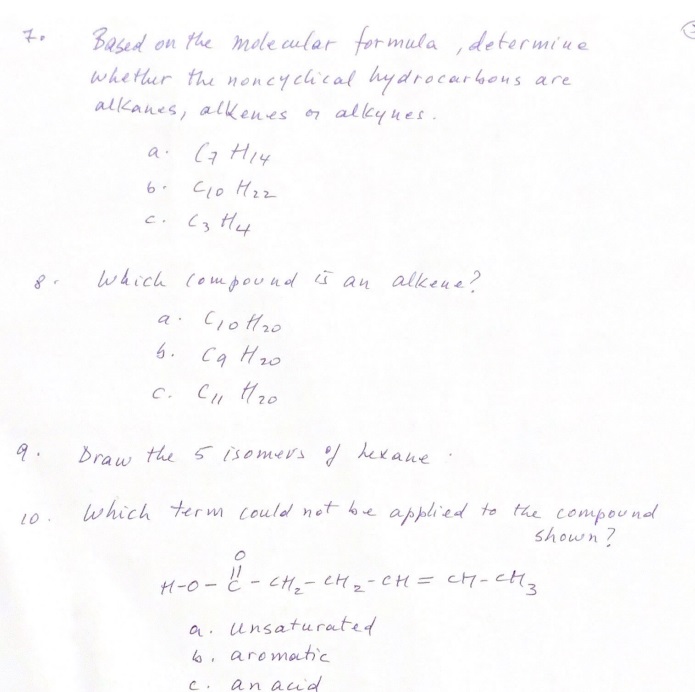 7. Based on the molecular formula, determine
whether the noncyclical hydrocarbons are
alkanes, alkenes or alkynes.
a. C7 H14
b. C10 H22
c. C3 H4
8. Which compound is an alkene?
a. C10 H20
b. C9 H20
c. C11 H20
9. Draw the 5 isomers of hexane.
10. Which term could not be applied to the compound
shown?
O
||
H-O-C-CH2-CH2-CH=CH-CH3
a. unsaturated
b. aromatic
c. an acid